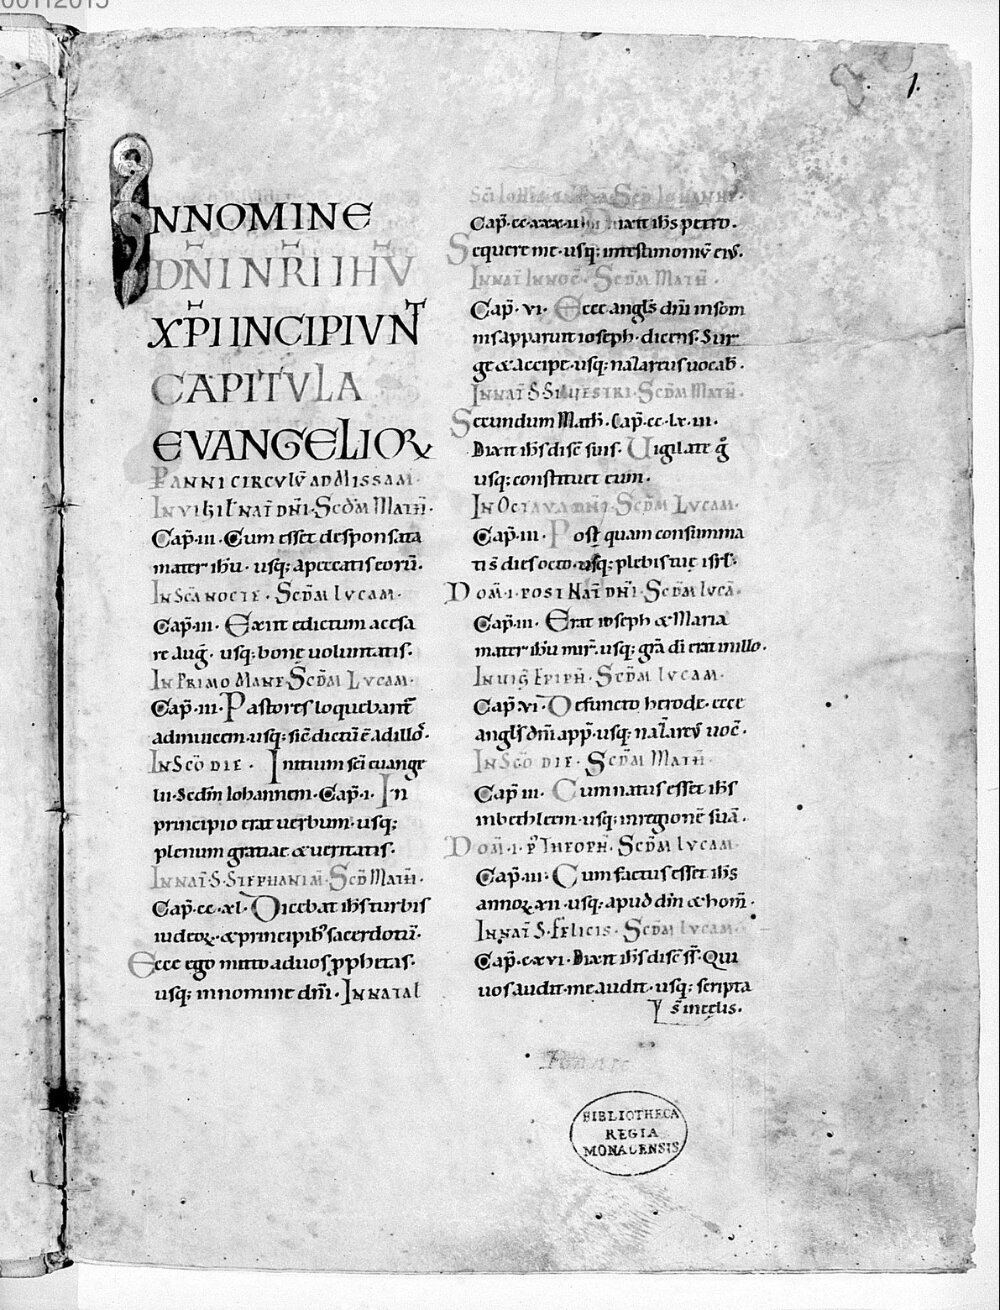 1.
INNOMINE
DN̄I N̄RI IH̄V
XP̄I INCIPIVNT̄
CAPITVLA
EVANGELIOꝜ
PANNI CIRCVLV̄ AD MISSAM·
IN VIGIL̄ NAT̄ DN̄I· SCD̄M MATH̄·
Cap̄·iii· Cum esset desponsata
mater ih̄u· usq: apeccatis eorū·
IN SC̄A NOCTE· SCD̄M LVCAM·
Cap̄·iii· Exiit edictum acesa
re auḡ· usq: bonę uoluntatis·
IN PRIMO MANE· SCD̄M LVCAM·
Cap̄·iii· Pastores loquebant̄
adinuicem· usq: sic̄ dictū ē adillos·
IN SC̄O DIE· Initium sc̄i euange
lii· Sedm̄ Iohannem· Cap̄·i· In
principio erat uerbum· usq;
plenum gratiae & ueritatis·
IN NAT̄ S· STEPHANI AM· SCD̄ MATH̄·
Cap̄·cc·xl· Dicebat ih̄s turbis
iudeoꝝ· & principib; sacerdotū·
Ecce ego mitto aduos ꝓphetas·
usq; innomine dn̄i· IN NATAL̄
SC̄I IOHANNIS SCD̄ IOHANNE·
Cap̄·cc·xxx·ii dixit ih̄s petro·
Sequere me· usq: intestimoniū eius·
IN NAT̄ INNOC̄· SCD̄M MATH̄·
Cap̄·vi· Ecce angl̄s dn̄i insom
nis apparuit ioseph· dicens· Sur
ge & accipe· usq: nazareus uocab̄·
IN NAT̄ S· SILVESTRI· SCD̄M MATH̄·
Secundum Math̄· Cap̄·cc·lx·iii·
Dixit ih̄s disc̄ suis· Uigilate g̊
usq: constituet eum·
IN OCTAVA DN̄I· SCD̄M LVCAM·
Cap̄·iii· Post quam consumma
ti s̄ dies octo· usq; plebis tuę isrl̄·
DOM̄·I· POST NAT̄ DN̄I· SCD̄M LVCĀ·
Cap̄·iii· Erat ioseph & Maria
mater ih̄u mir̄· usq; grā dī erat inillo·
IN VIḠ EPIPH̄· SCD̄M LVCAM·
Cap̄·vi· Defuncto herode· ecce
angl̄s dn̄i app̄· usq: nazareus uoc̄·
IN SC̄O DIE· SCD̄M MATH̄·
Cap̄ iii· Cum natus esset ih̄s
inbethleem· usq; inregionē suā·
DOM̄·I· P̄ THEOPH̄· SCD̄M LVCAM·
Cap̄·iii· Cum factus esset ih̄s
annoꝝ xii· usq; apud dm̄ & hom̄·
IN NAT̄ S· FELICIS· SCD̄M LVCAM·
Cap̄·cxvi· Dixit ih̄s disc̄ s̄s· Qui
uos audit· me audit· usq; scripta
s̄ incęlis·
BIBLIOTHECA
REGIA
MONACENSIS